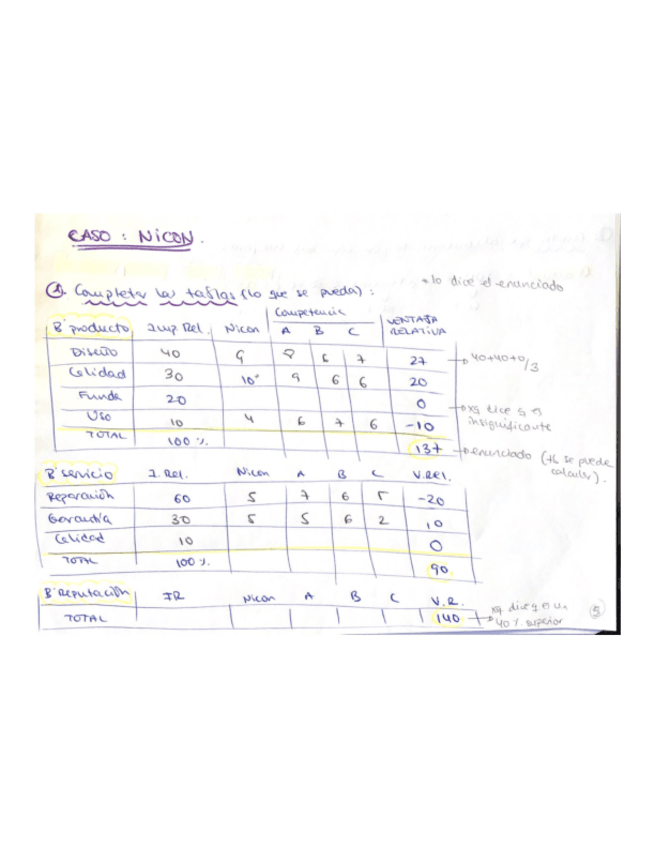 CASO : NICON.
① Completar las tablas (lo que se pueda) :
* lo dice el enunciado
Competencia
Bº producto Imp Rel. Nicon A B C VENTAJA RELATIVA
Diseño 40 9 8 6 7 27 → 40+40+0/3
Calidad 30 10* 9 6 6 20
Funda 20 0 → xq dice q es insignificante
Uso 10 4 6 7 6 -10
TOTAL 100 % 137 → enunciado (tb se puede calcular).
Bº servicio I. Rel. Nicon A B C V. Rel.
Reparación 60 5 7 6 5 -20
Garantía 30 5 5 6 2 10
Calidad 10 0
TOTAL 100 %. 90
Bº Reputación IR Nicon A B C V. R.
TOTAL 140 → xq dice q es un 40 % superior
⑤